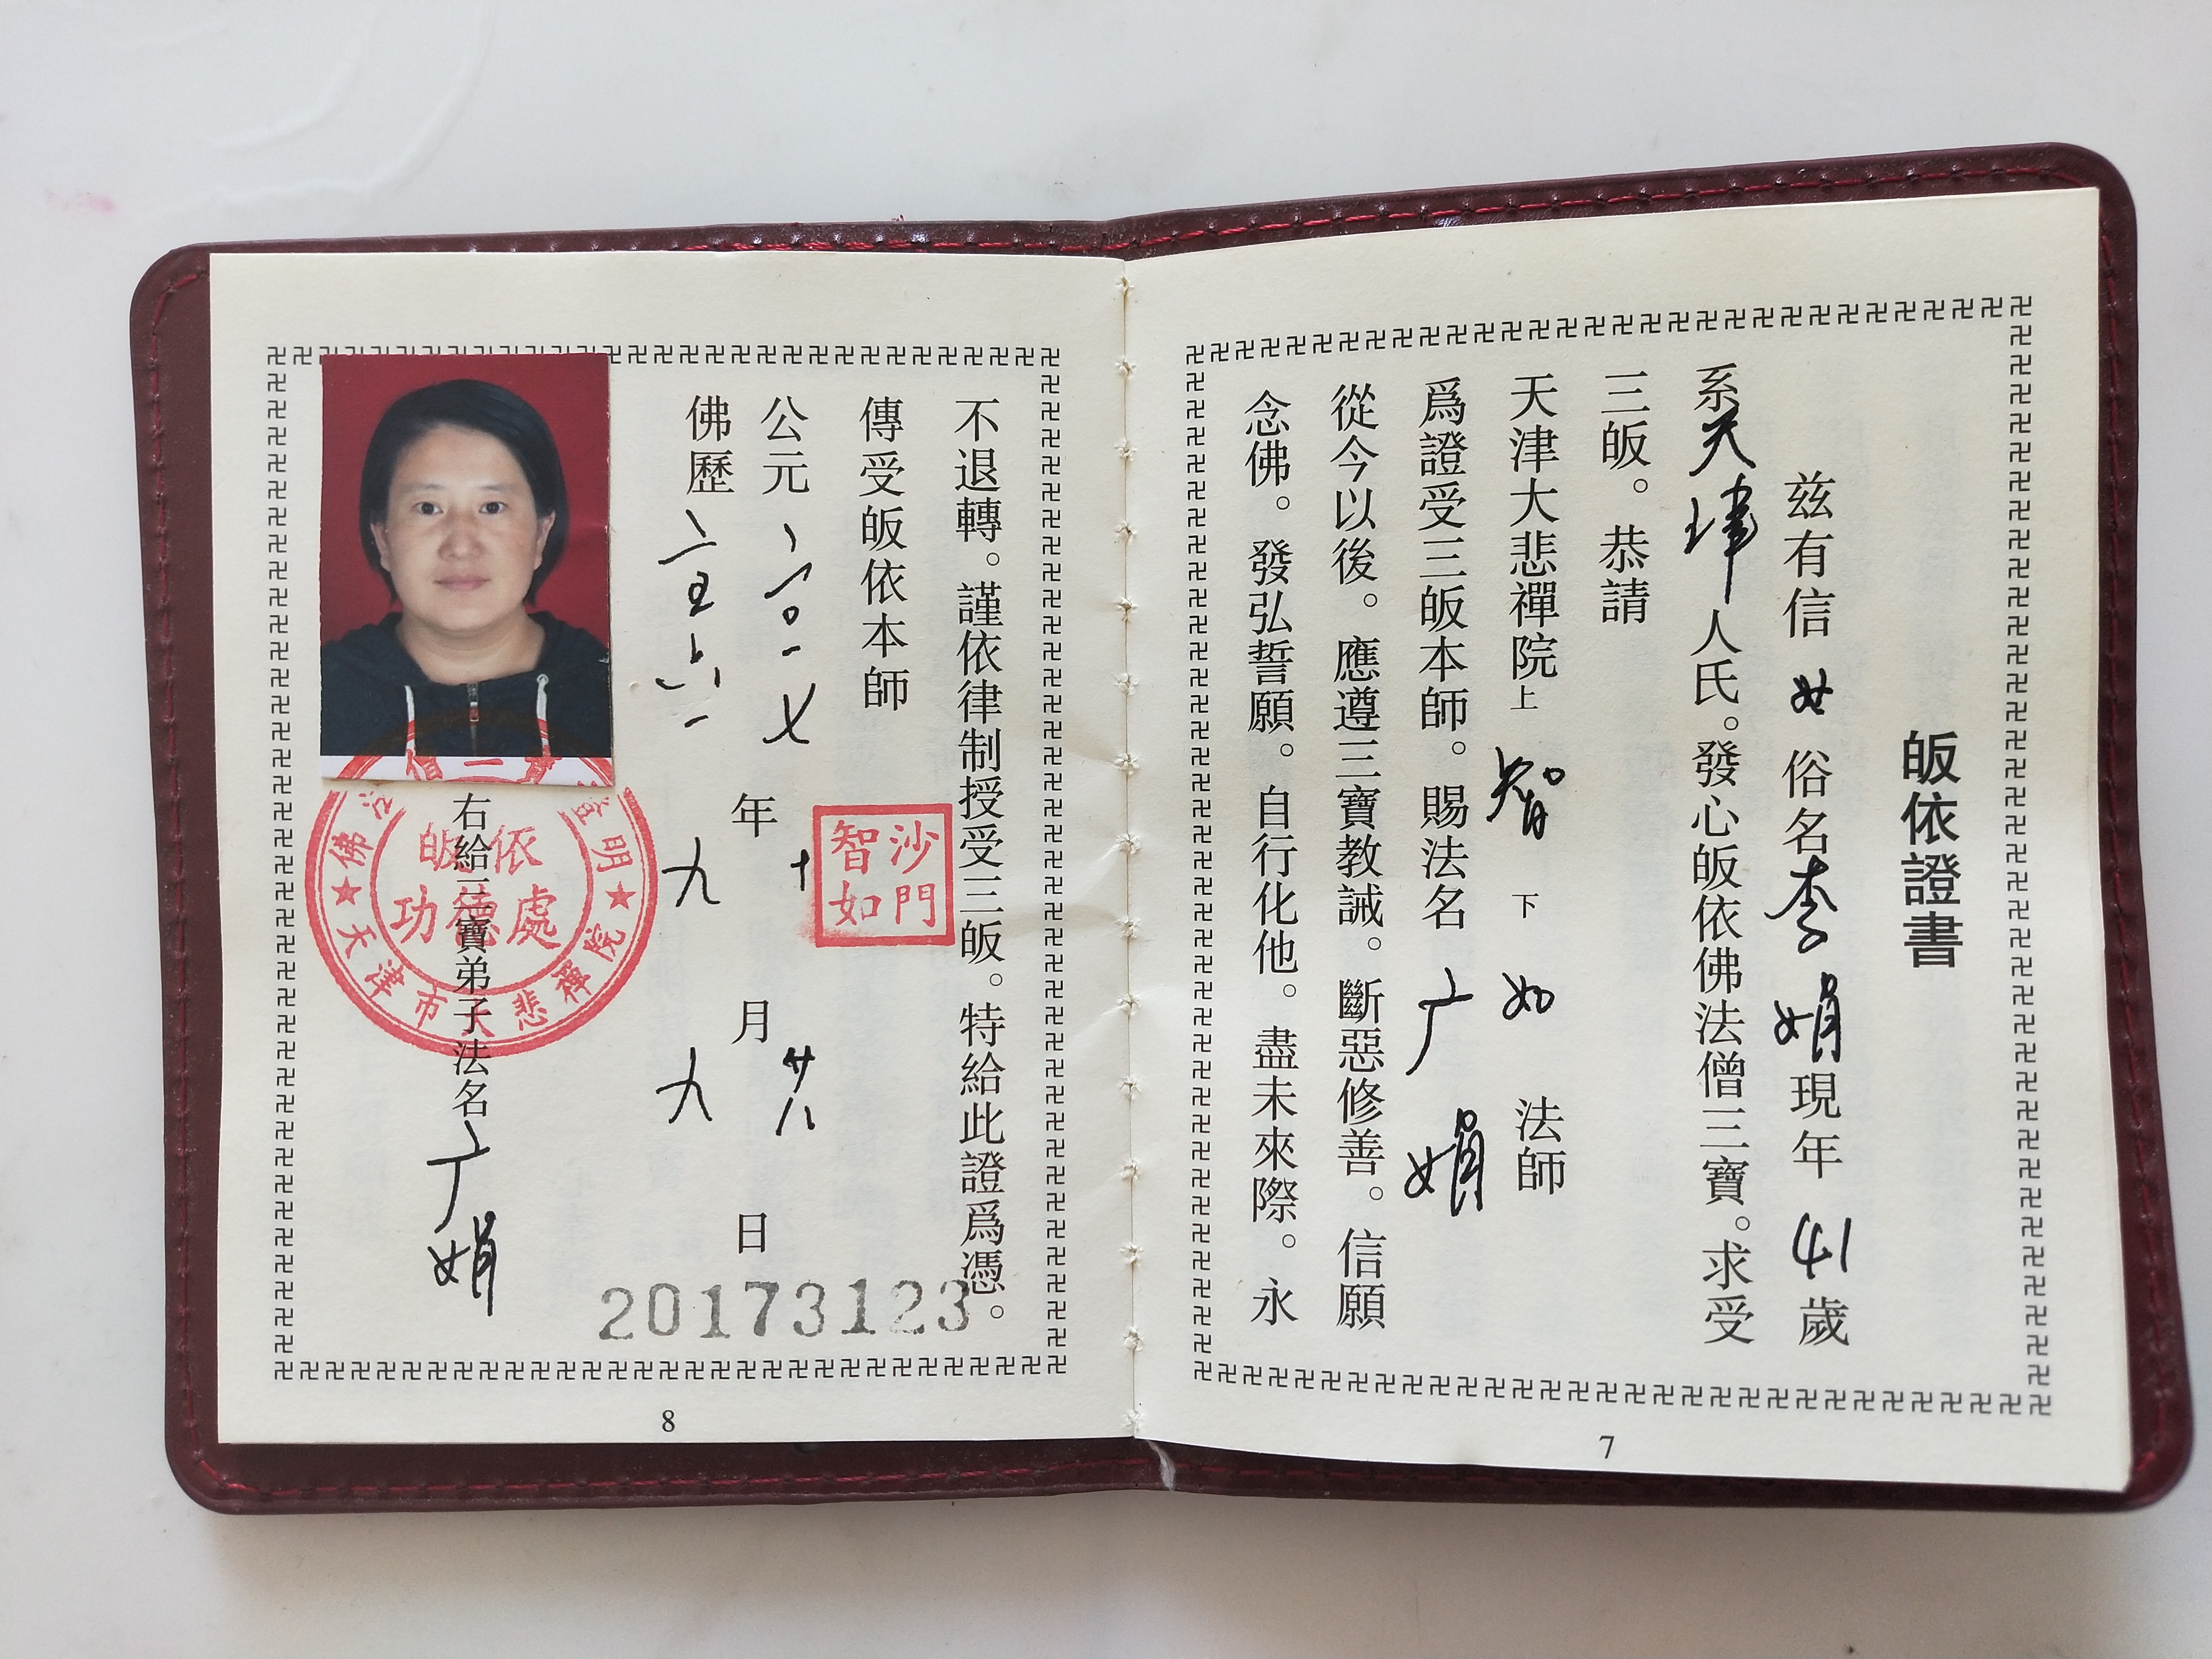 皈依證書
茲有信女俗名李娟現年41歲
系天津人氏。發心皈依佛法僧三寶。求受
三皈。恭請
天津大悲禪院上智下如法師
爲證受三皈本師。賜法名广娟
從今以後。應遵三寶教誡。斷惡修善。信願
念佛。發弘誓願。自行化他。盡未來際。永
7
不退轉。謹依律制授受三皈。特給此證爲憑。
傳受皈依本師
沙門智如
公元二〇一七年十月廿八日
佛歷二五六一年九月九日
右給三寶弟子法名广娟
皈依
功德處
天津市大悲禪院
20173123
8